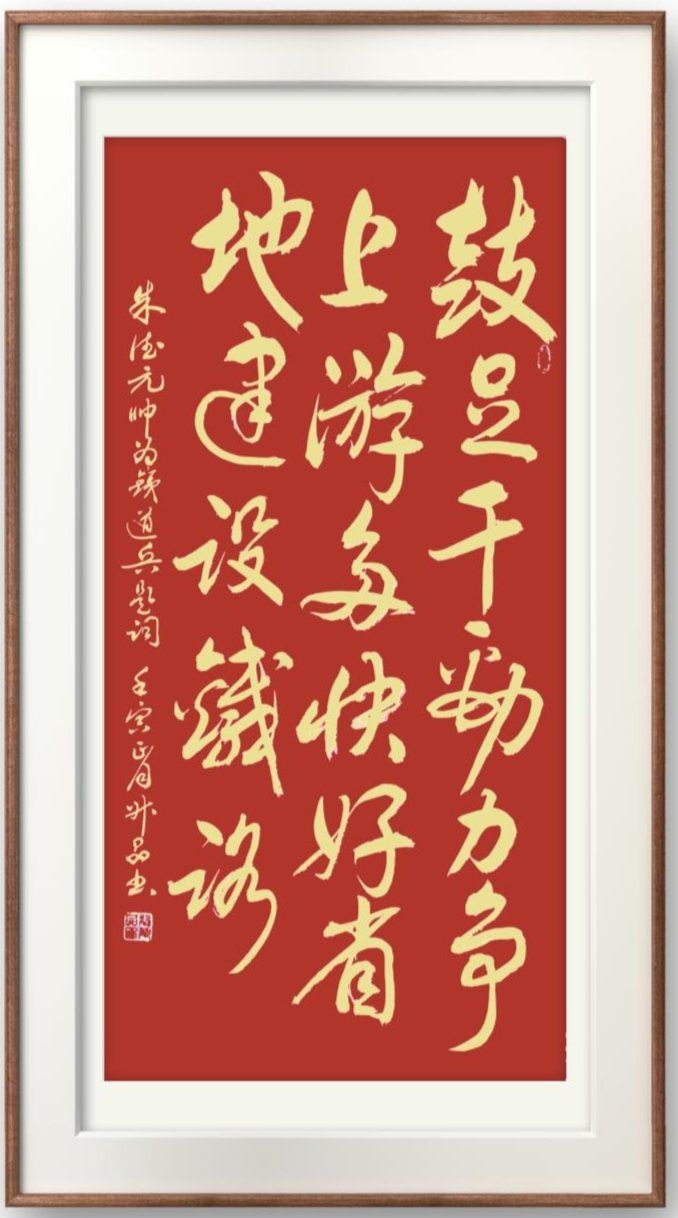 鼓足干劲力争
上游多快好省
地建设鐵路
朱德元帅为鐵道兵题词 壬寅正月 晶书